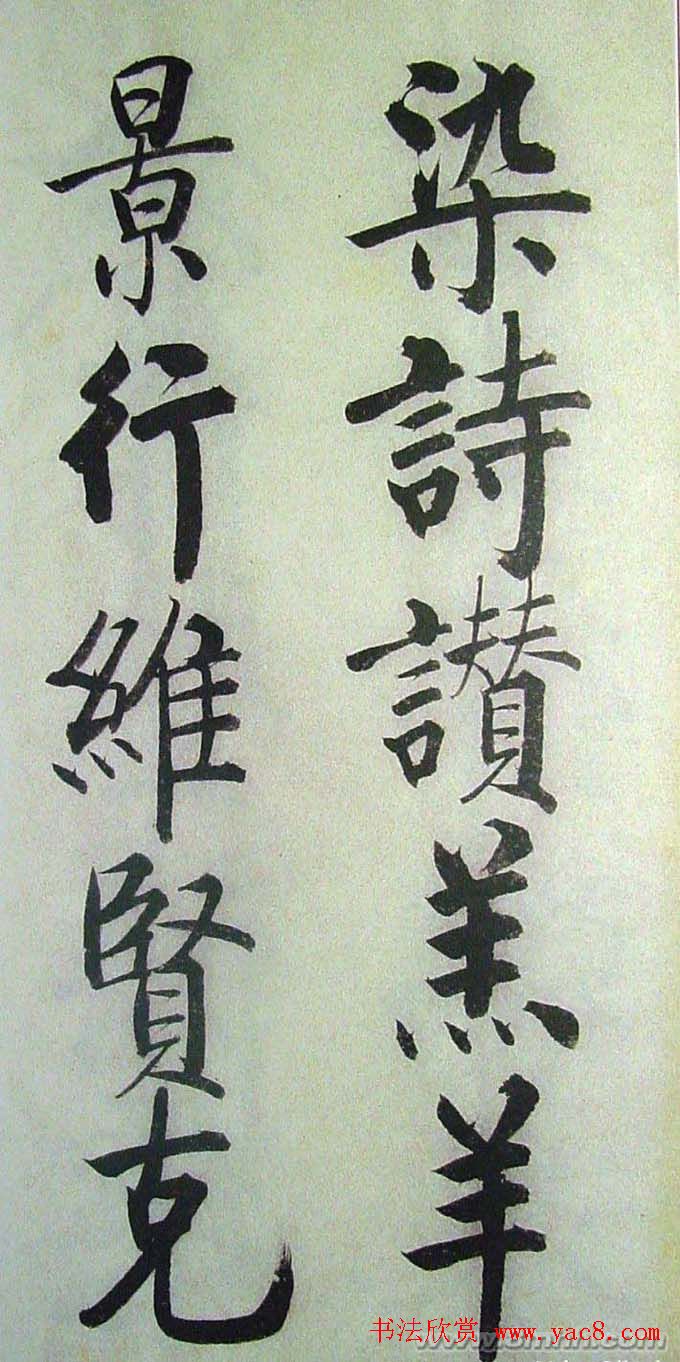 染詩讃羔羊
景行維賢克
书法欣赏 www.yac8.com